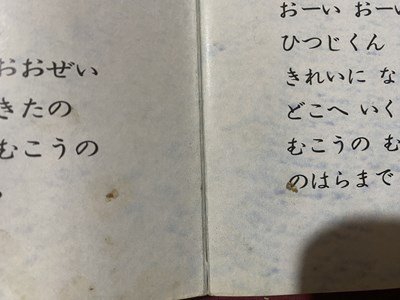 おおぜい
きたの
むこうの
おーい おーい
ひつじくん
きれいに な
どこへ いく
むこうの む
のはらまで